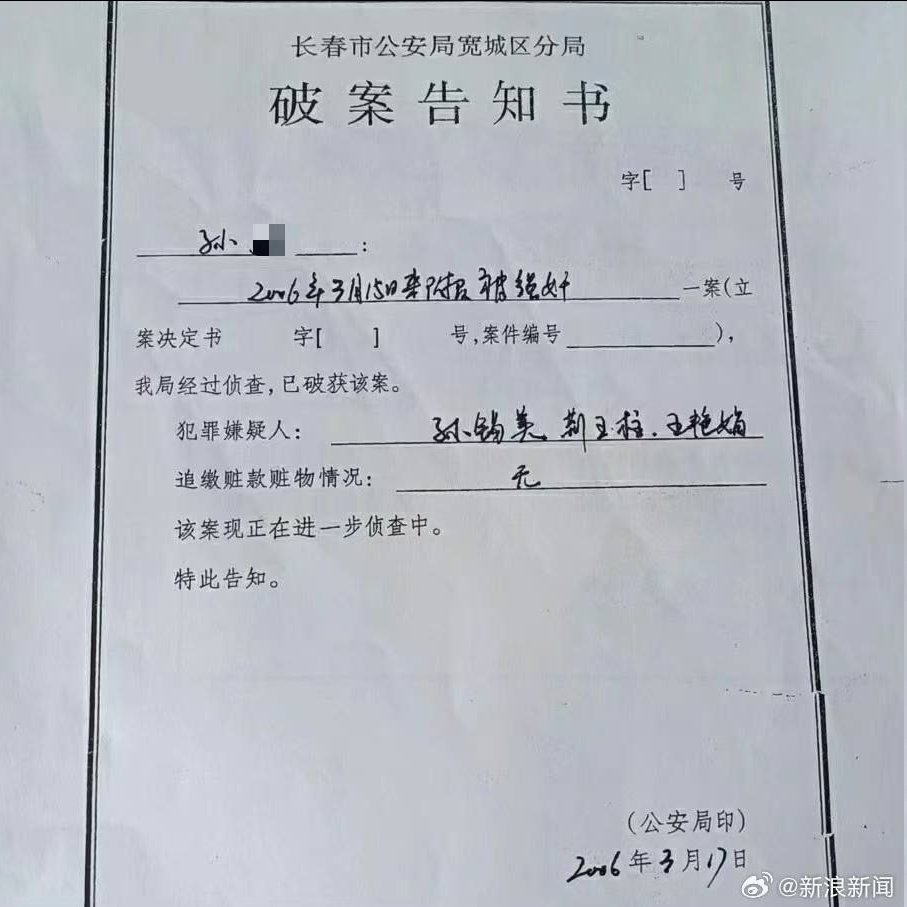 长春市公安局宽城区分局
破案告知书
字[ ] 号
孙 :
2006年3月15日 被强奸 一案(立
案决定书 字[ ] 号,案件编号 ),
我局经过侦查,已破获该案。
犯罪嫌疑人: 孙锡美 荆玉柱、王艳娟
追缴赃款赃物情况: 无
该案现正在进一步侦查中。
特此告知。
(公安局印)
2006年3月17日
@新浪新闻